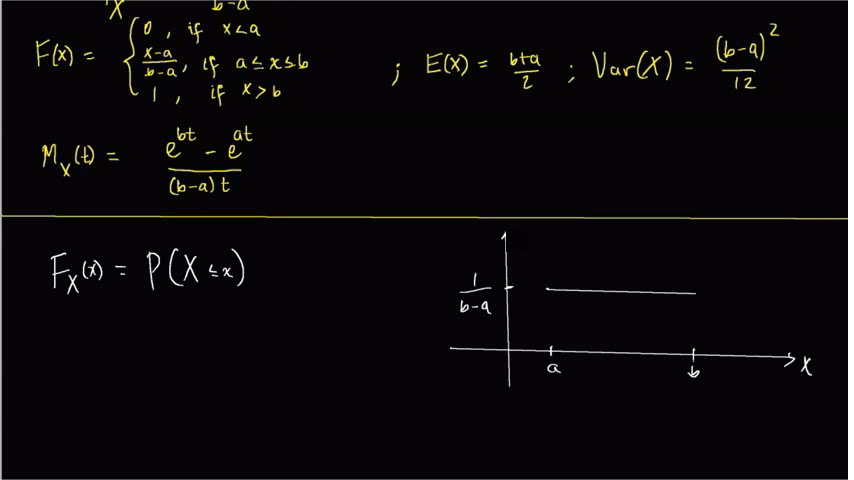 X b-a
F(x) = { 0 , if x<a
x-a/b-a , if a≤x≤b
1 , if x>b
; E(X) = b+a/2 ; Var(X) = (b-a)²/12
M_X(t) = e^bt - e^at/(b-a)t
F_X(x) = P(X ≤ x)
1/b-a
a b X